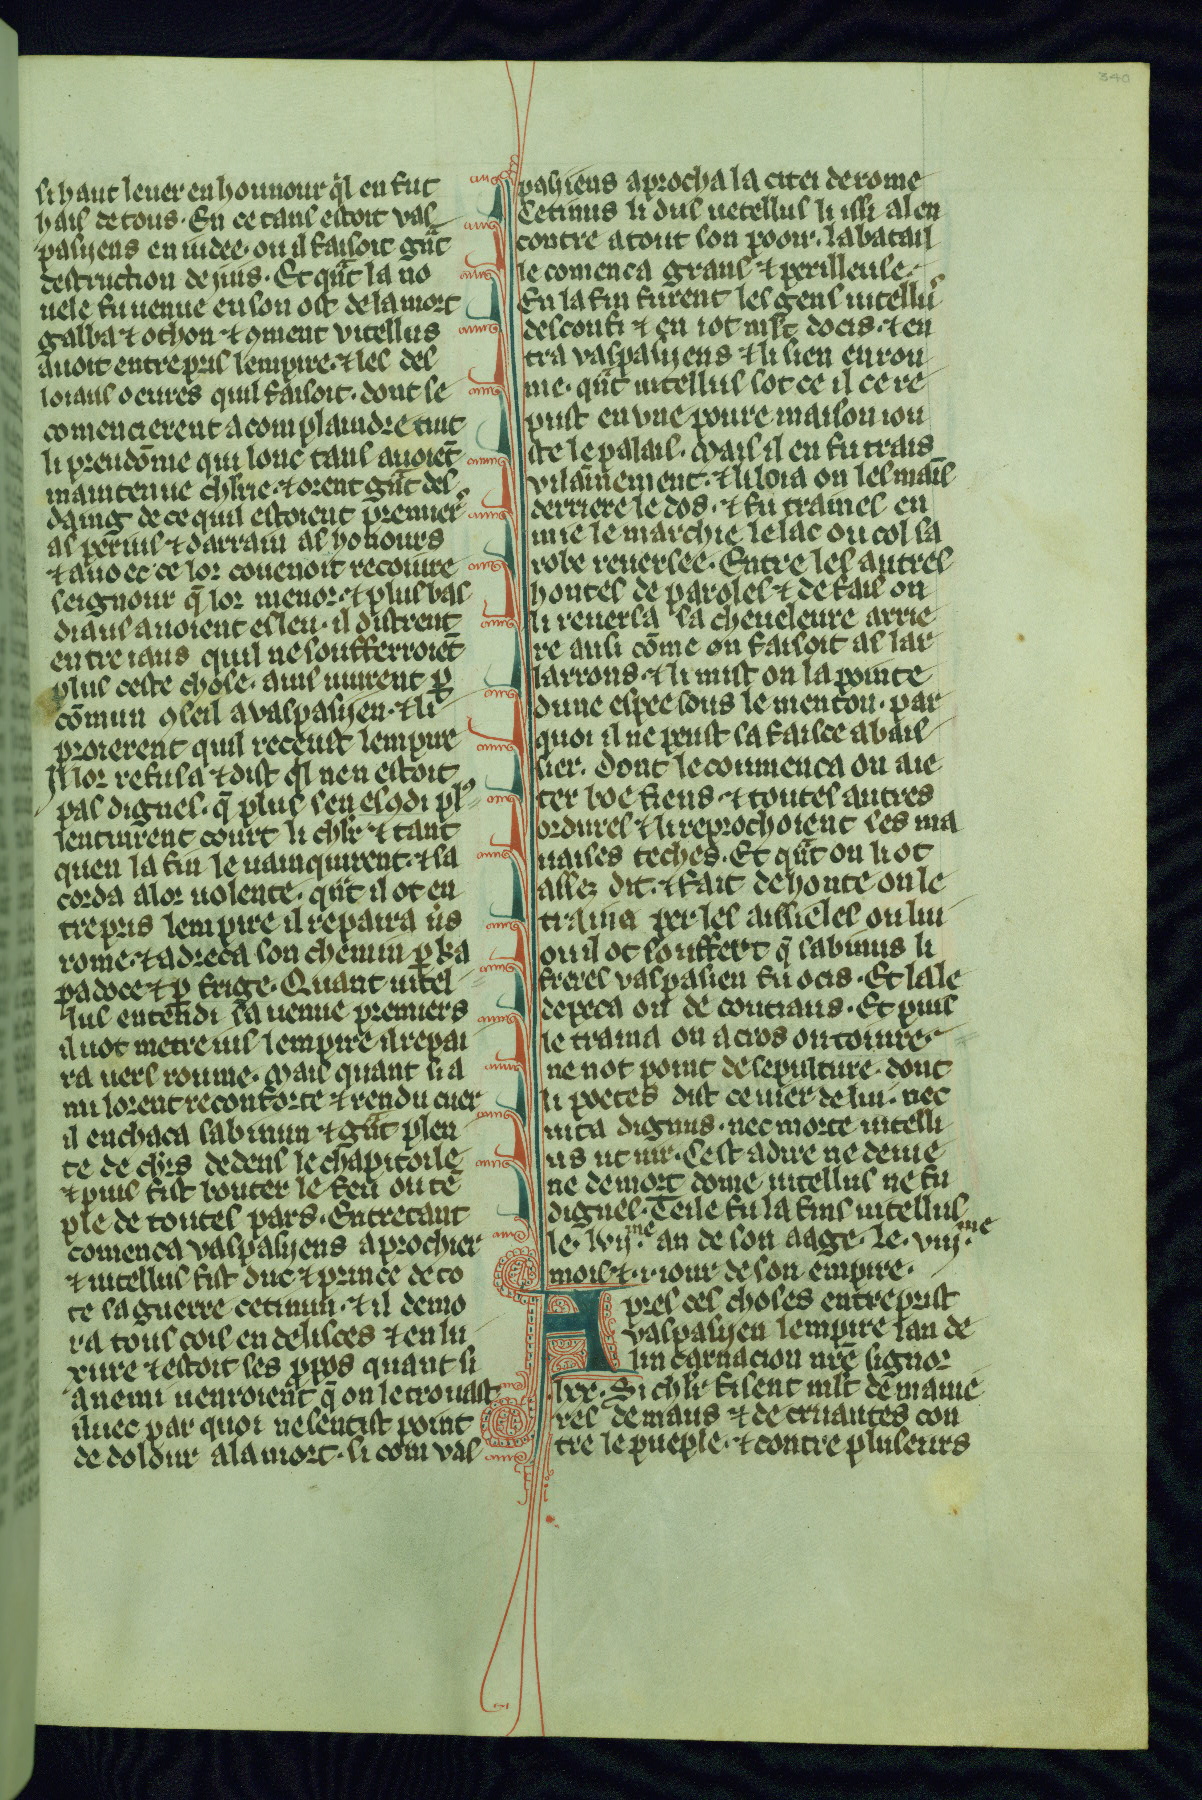 340
si haut lever en hounour q̃l en fut
hais de tous. En ce tans estoit vas
pasijens en iudee. ou il faisoit gñt
destruction de juis. Et qñt la no
uele fu uenue en son ost de la mort
galba ⁊ othon ⁊ ꝯment vitellus
auoit entrepris lempire. ⁊ les des
loiaus oeures quil faisoit. dont se
comencierent a complaindre tuit
li preudõme qui lonc tans auoiẽt
maintenue chl̃rie. ⁊ orent gñt des
daing de ce quil estoient premier
as perius ⁊ darrain as honours
⁊ auoec ce lor couenoit recoiure
seignour q̃ lor menor. ⁊ plus bas
diaus auoient esleu. il distrent
entre iaus quil ne soufferroiẽt
plus ceste chose. ains uinrent ꝑ
cõmun ꝯseil a vaspasijen. ⁊ li
proierent quil receust lempire
Il lor refusa ⁊ dist q̃l nen estoit
pas dignes. q̃ plus sen escõdi plꝰ
lentinrent court li chl̃r ⁊ tant
quen la fin le uainquirent. ⁊ sa
corda a lor uolente. qñt il ot en
trepris lempire il repaira ũs
rome. ⁊ adreca son chemin ꝑ ka
padoce ⁊ ꝑ frige. Quant uitel
lus entendi sa uenue premiers
il uot metre ius lempire il repai
ra uers roume. Mais quant si a
mi lorent reconforte ⁊ rendu cuer
il enchaca sabinun ⁊ gñt plen
te de chl̃rs dedens le chapitoile
⁊ puis fist bouter le feu ou tẽ
ple de toutes pars. Entretant
comenca vaspasijens aprochier
⁊ uitellus fist duc ⁊ prince de co
te sa guerre cetinun. ⁊ il demo
ra tous cois en delisces ⁊ en lu
xure ⁊ estoit ses ꝓpos quant si
anemi uenroient q̃ on le trouast
iluec par quoi ne sentist point
de dolour a la mort. si com vas
pasijens aprocha la citei de rome
Cetinus li dus uetellus li issi al en
contre a tout son pooir. la batail
le comenca grans ⁊ perilleuse.
En la fin furent les gens uitellũ
desconfi ⁊ en iot mlt docis. ⁊ en
tra vaspasijens ⁊ li sien en rou
me. qñt uitellus sot ce il ce re
pust en vne poure maison iou
ste le palais. Mais il en fu trais
vilainnement. ⁊ li loia on les maĩs
derriere le dos. ⁊ fu traines en
mie le marchie le lac ou col sa
robe reuersee. Entre les autres
hontes de paroles ⁊ de fais on
li reuersa sa cheueleure arrie
re ausi cõme on faisoit as lar
larrons. ⁊ li mist on la pointe
dune espee sous le menton. par
quoi il ne peust sa faisce abais
sier. Dont le coumenca on a ie
ter boe fiens. ⁊ toutes autres
ordures ⁊ li reprochoient ses ma
uaises teches. Et qñt on li ot
assez dit. ⁊ fait de honte on le
traina per les aissieles ou liu
ou il ot souffert q̃ sabinus li
freres vaspasien fu ocis. Et la le
depeca on de coutiaus. Et puis
le traina on a cros ou toiure.
ne not point de sepulture. dont
li poetes dist ce uier de lui. nec
uita dignus. nec morte uitelli
us ut uir. Cest a dire ne de uie
ne de mort dome uitellus ne fu
dignes. Teile fu la fins uitellus
le. lvij.me an de son aage. Le. viij.me
mois ⁊. i. iour de son empire.
Apres ces choses entreprist
vaspasijen lempire lan de
lincarnacion nr̃e signor
lxx. Si chl̃r fisent mlt de manie
res de maus ⁊ de cruautes con
tre le pueple. ⁊ contre pluseurs